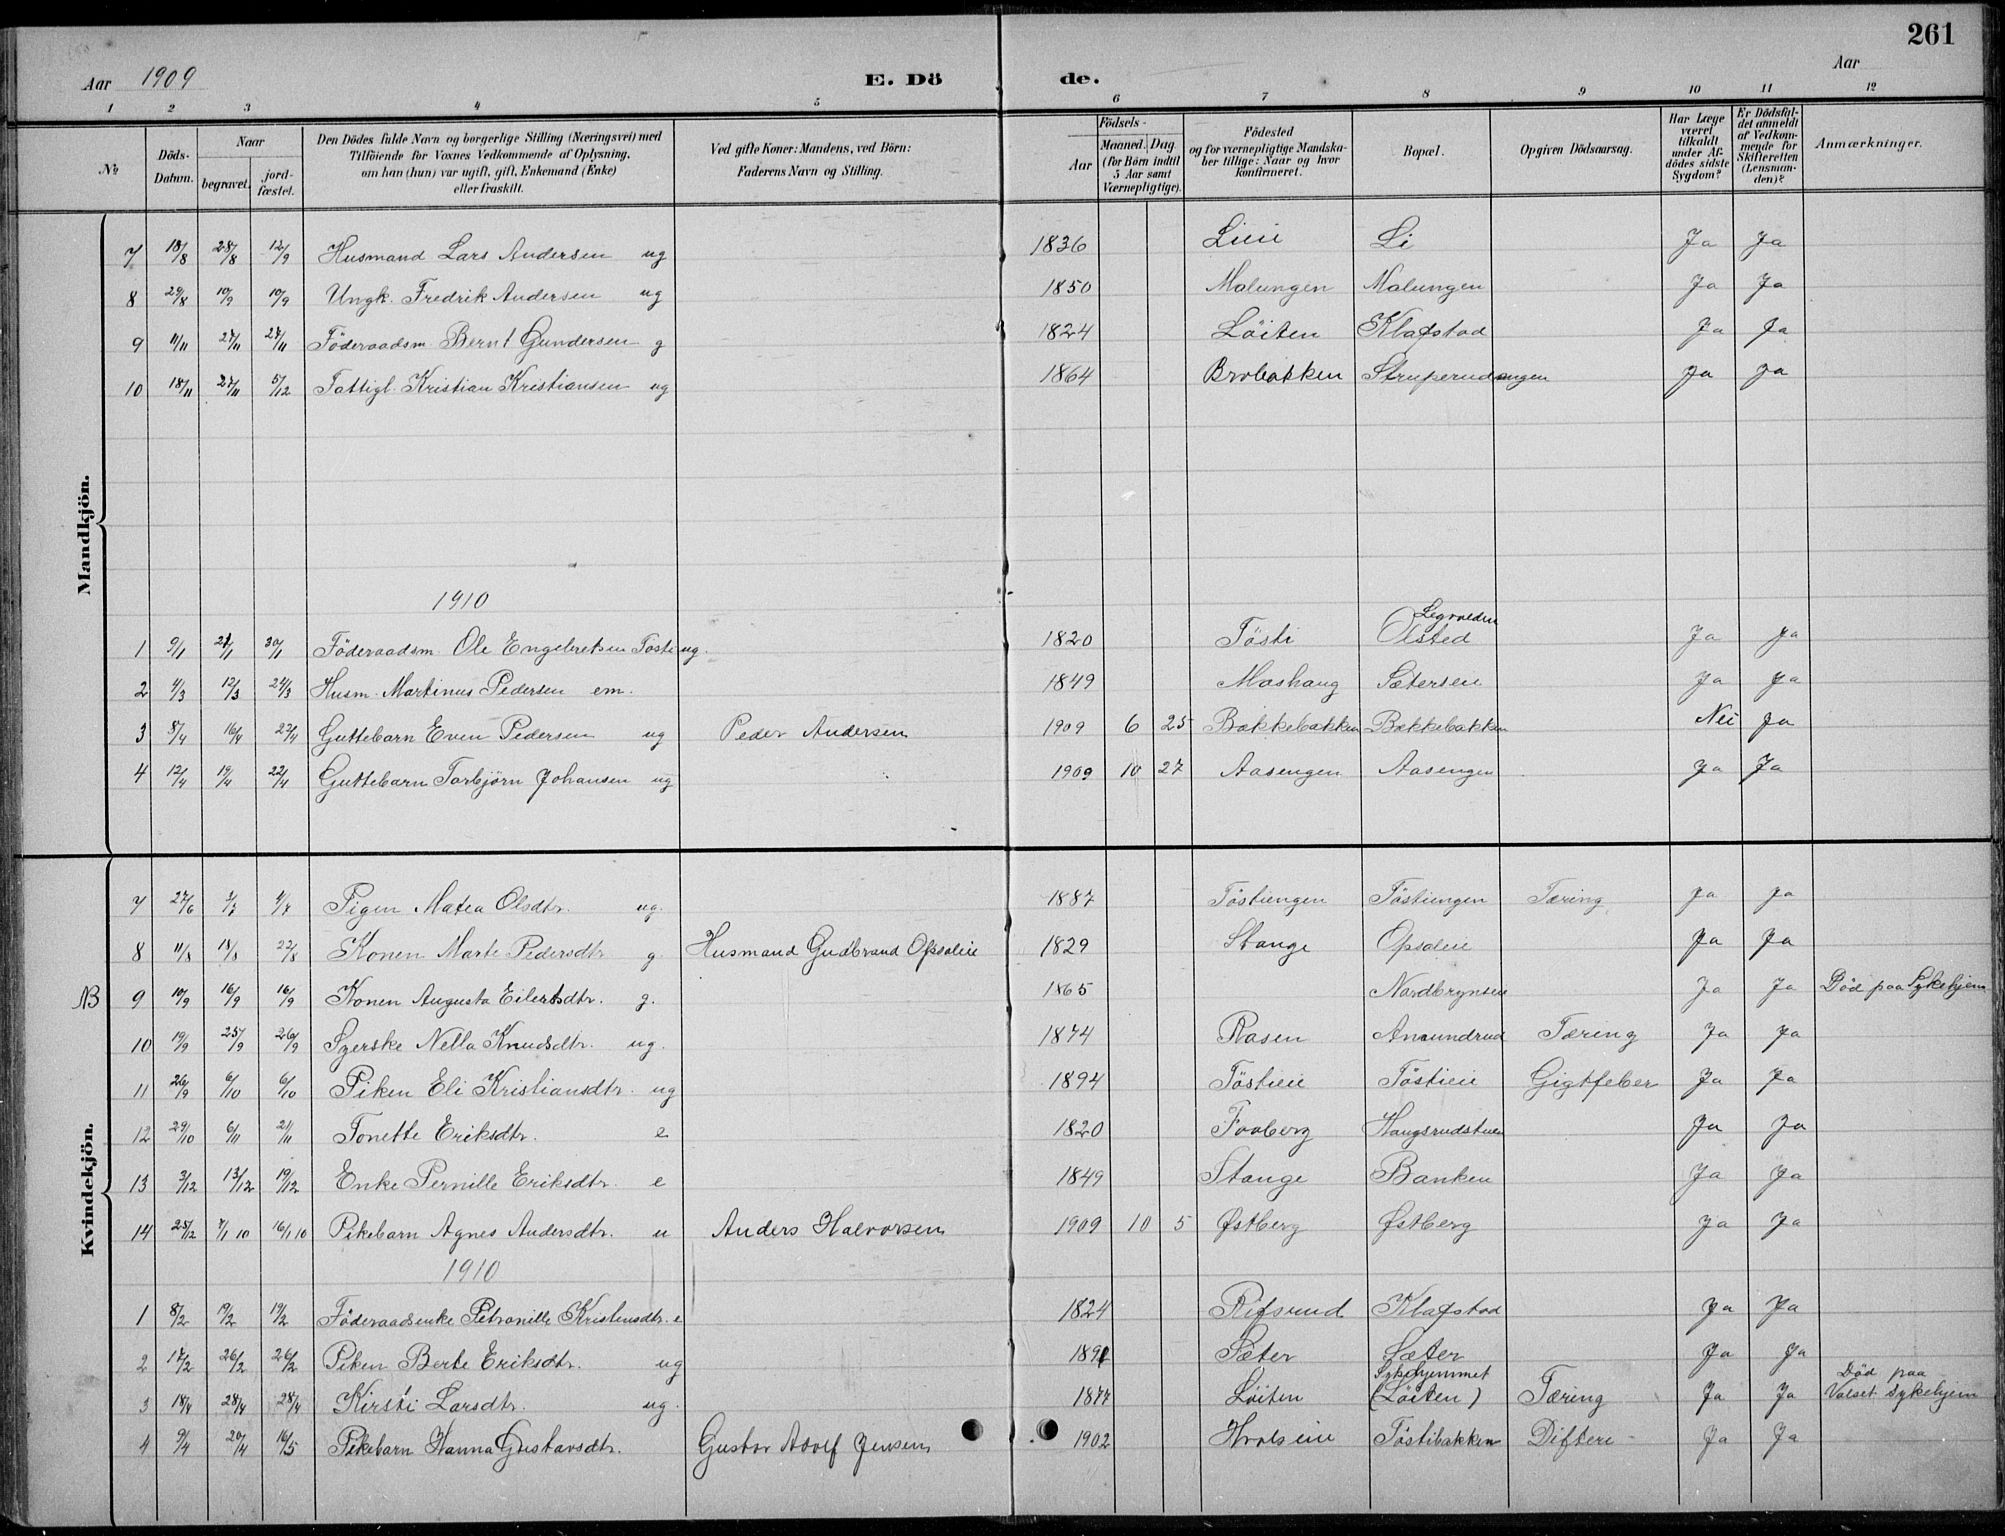 261
Aar 1909 E. Dö de. Aar
1 2 3 4 5 6 7 8 9 10 11 12
No
Döds-Datum.
Naar
begravet.
jord-fæstet.
Den Dödes fulde Navn og borgerlige Stilling (Næringsvei) med
Tilföiende for Voxnes Vedkommende af Oplysning,
om han (hun) var ugift, gift, Enkemand (Enke)
eller fraskilt.
Ved gifte Koner: Mandens, ved Börn:
Faderens Navn og Stilling.
Födsels-
Aar
Maaned. Dag
(for Börn indtil
5 Aar samt
Værnepligtige).
Födested
og for værnepligtige Mandska-
ber tillige: Naar og hvor
konfirmeret.
Bopæl.
Opgiven Dödsaarsag.
Har Læge
været
tilkaldt
under Af-
dödes sidste
Sygdom?
Er Dödsfal-
det anmeldt
af Vedkom-
mende for
Skifteretten
(Lensman-
den)?
Anmærkninger.
Mandkjön.
7 18/8 28/8 12/9 Husmand Lars Andersen ug 1836 Lieie Li Ja Ja
8 29/8 10/9 10/9 Ungk. Fredrik Andersen ug 1850 Malungen Malungen Ja Ja
9 11/11 27/11 27/11 Föderaadsm Bernt Gundersen g 1824 Löiten Klafstad Ja Ja
10 18/11 27/11 5/12 Fattigl. Kristian Kristiansen ug 1864 Brobakken Struperudengen Ja Ja
1910
1 9/1 21/1 30/1 Föderaadsm. Ole Engebretsen Tösti ug. 1820 Tösti Olsted Ja Ja
2 4/3 12/3 24/3 Husm. Martinus Pedersen em. 1849 Moshaug Sætereie Ja Ja
3 8/4 16/4 22/4 Guttebarn Even Pedersen ug Peder Andersen 1909 6 25 Bakkebakken Bakkebakken Nei Ja
4 12/4 19/4 22/4 Guttebarn Torbjörn Johansen ug 1909 10 27 Aasengen Aasengen Ja Ja
Kvindekjön.
7 27/6 3/7 4/7 Pigen Matea Olsdtr. ug. 1887 Töstiengen Töstiengen Tæring Ja Ja
8 11/8 18/8 22/8 Konen Marte Pedersdtr g. Husmand Gudbrand Opsaleie 1829 Stange Opsaleie Ja Ja
NB 9 10/9 16/9 16/9 Konen Augusta Eilertsdtr. g. 1865 Nordbrynseie Ja Ja Död paa Sykehjem
10 19/9 25/9 26/9 Syerske Nella Knudsdtr. ug. 1874 Rasen Amundrud Tæring Ja Ja
11 26/9 6/10 6/10 Piken Eli Kristiansdtr. ug 1894 Töstieie Töstieie Gigtfeber Ja Ja
12 29/10 6/11 21/11 Tonette Eriksdtr. e 1820 Faaberg Haugsrudstuen Ja Ja
13 3/12 13/12 19/12 Enke Pernille Eriksdtr. e 1849 Stange Banken Ja Ja
14 25/12 7/1 10 16/1 10 Pikebarn Agnes Andersdtr. u Anders Halvorsen 1909 10 5 Østberg Østberg Ja Ja
1910
1 8/2 19/2 19/2 Föderaadsenke Petronille Kristensdtr. e 1824 Rifsrud Klafstad Ja Ja
2 17/2 26/2 26/2 Piken Berte Eriksdtr. ug Sæter Sæter Ja Ja
3 18/4 28/4 28/4 Kirsti Larsdtr. ug. 1877 Löiten Sykehjemmet (Löiten) Tæring Ja Ja Död paa Valset Sykehjem
4 9/4 20/4 16/5 Pikebarn Hanna Gustavsdtr. Gustav Adolf Jensen 1902 Hvalseie Töstibakken Difteri Ja Ja